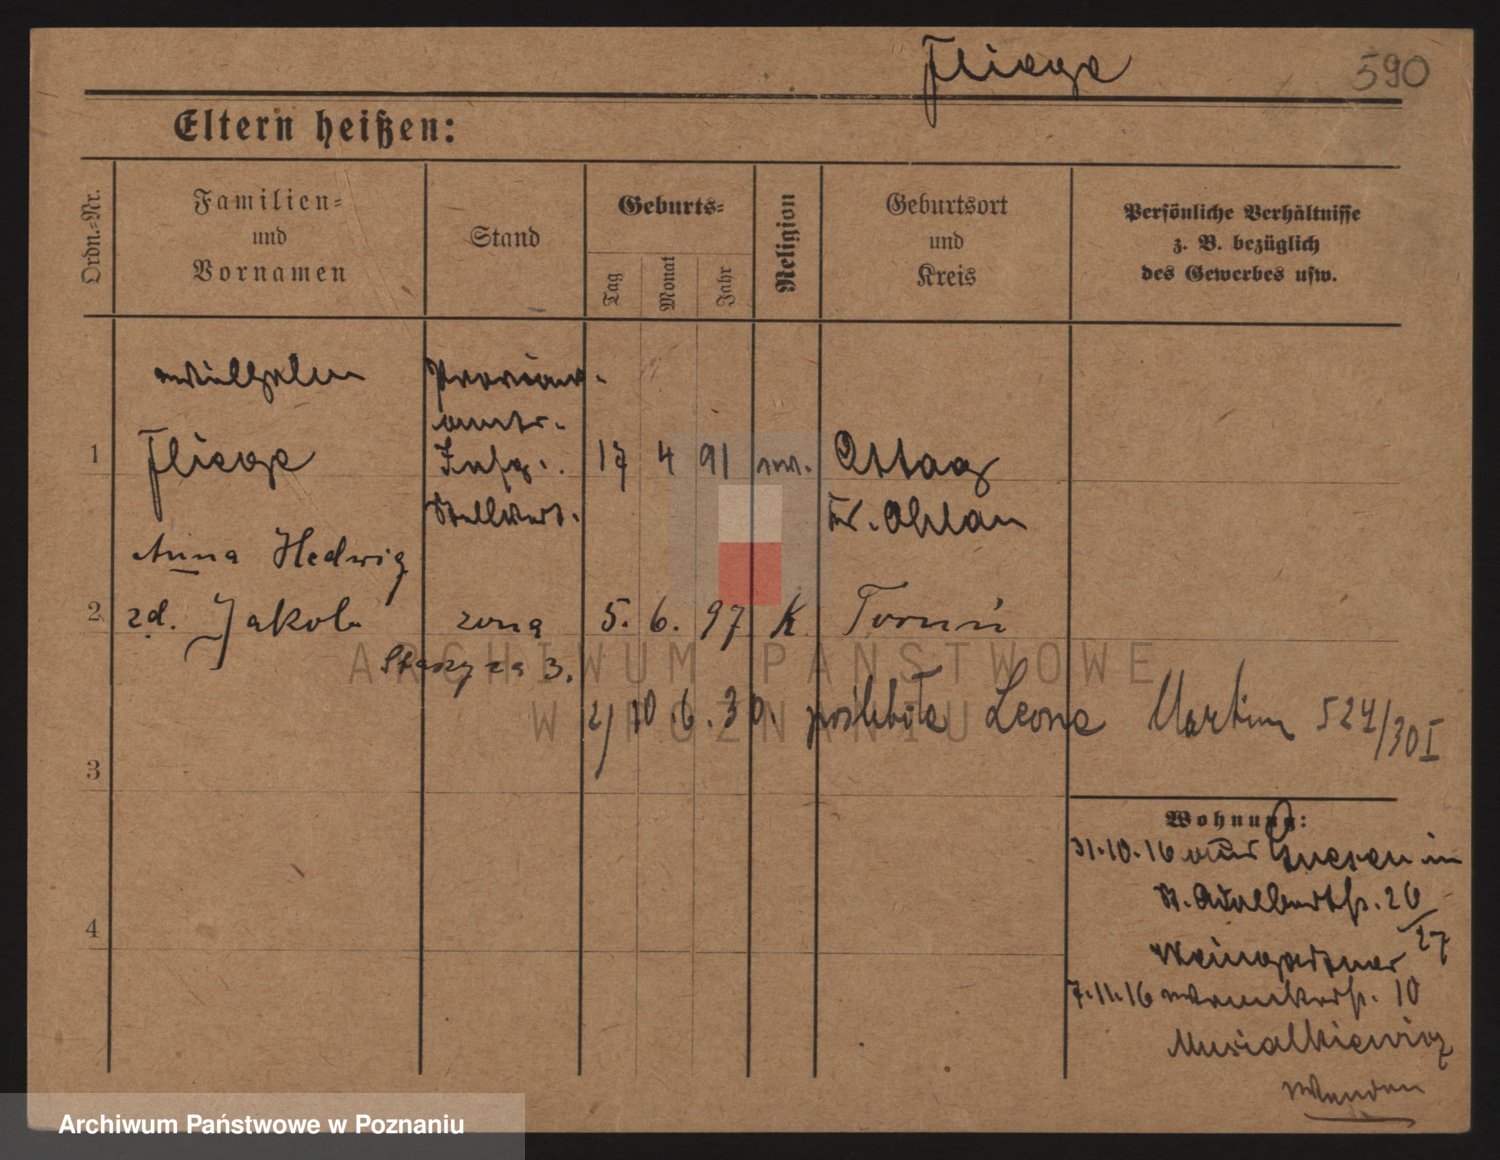 Fliege 590
Eltern heißen:
Ordn.-Nr.
Familien-
und
Vornamen
Stand
Geburts-
Tag
Monat
Jahr
Religion
Geburtsort
und
Kreis
Persönliche Verhältnisse
z. B. bezüglich
des Gewerbes usw.
Wilhelm
Fliege
Proviant-
amts-
Stellvert.
1
17 4 91
Ottag
Kr. Ohlau
Anna Hedwig
2 zd. Jakob
żona 5. 6. 97 K Toruń
10.6.30. poślubiła Leona Martin 527/30 I
3
4
Wohnung:
31.10.16 aus Gnesen in
St. Adalbertstr. 26/27
Weingärtner
7.11.16 10
Musialkiewicz
ARCHIWUM PAŃSTWOWE
W POZNANIU
Archiwum Państwowe w Poznaniu